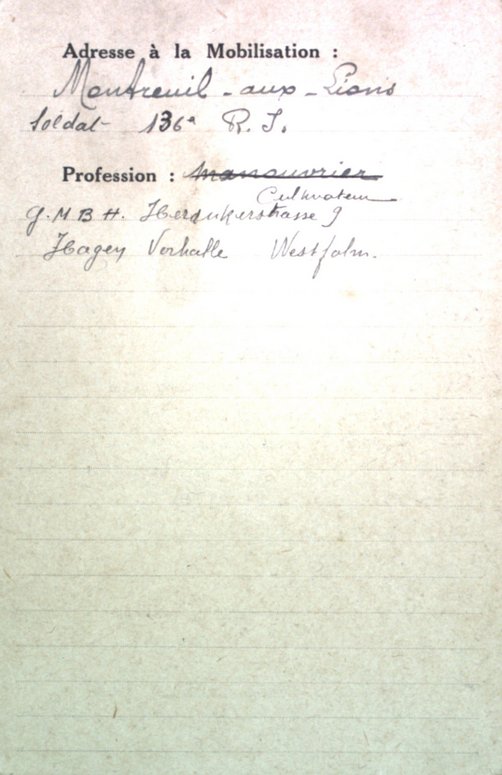 Adresse à la Mobilisation :
Montreuil-aux-Lions
Soldat 136e R. I.
Profession : Manouvrier
Cultivateur
G. M. B. H. Herdekerstrasse 9
Hagen Vorhalle Westfalm.